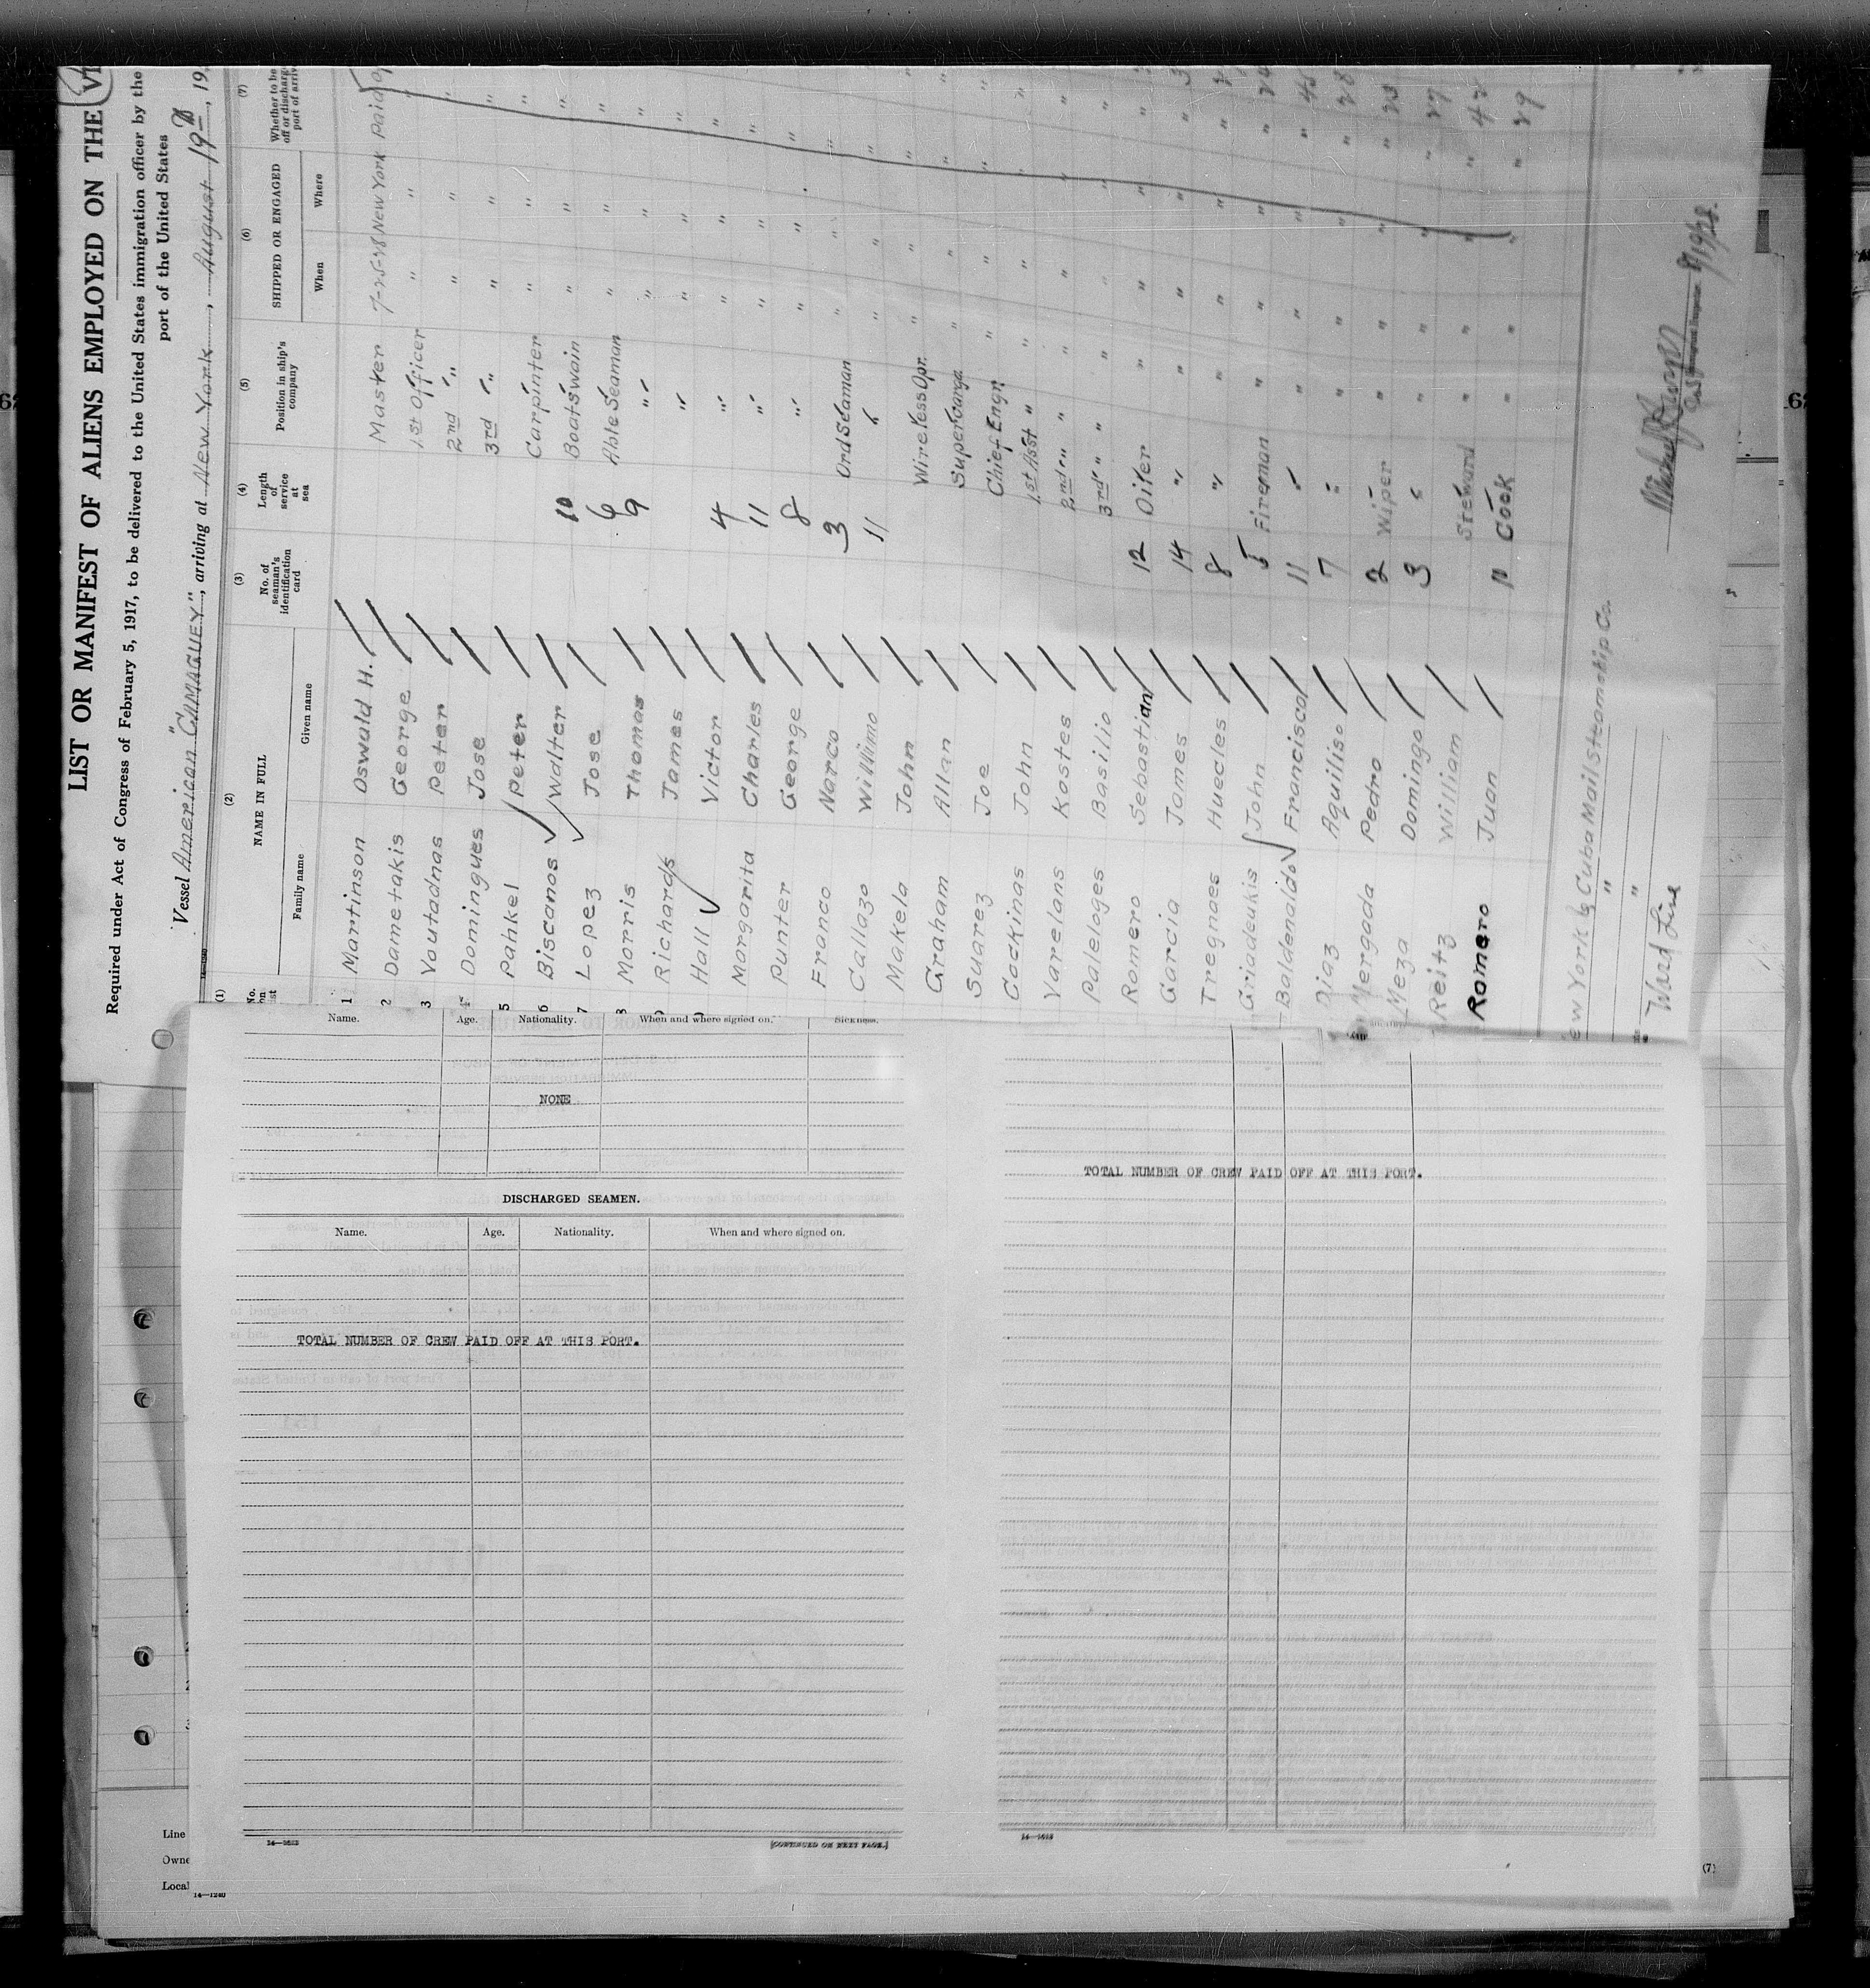 LIST OR MANIFEST OF ALIENS EMPLOYED ON THE
Required under Act of Congress of February 5, 1917, to be delivered to the United States immigration officer by the
port of the United States
Vessel American "CAMAGUEY", arriving at New York, August 19th, 19
(1) (2) (3) (4) (5) (6) (7)
NAME IN FULL
No. of seaman's identification card
Length of service at sea
Position in ship's company
SHIPPED OR ENGAGED
Family name Given name When Where
1 Martinson Oswald H. Master 7-25-28 New York Paid
2 Dametakis George 1st Officer " "
3 Voutadnas Peter 2nd " " "
4 Domingues Jose 3rd " " "
5 Pahkel Peter Carpinter " "
6 Biscanos Walter 10 Boatswain " "
7 Lopez Jose 6 Able Seaman " "
8 Morris Thomas 9 " " "
Richards James " " "
Hall Victor 4 " " "
Margarita Charles 11 " " "
Punter George 8 " " "
Franco Narco 3 Ord Seaman " "
Callazo 11 " " "
Makela John Wireless Opr. " "
Graham Allan Supercargo " "
Suarez Joe Chief Engr. " "
Cockinas John 1st Asst " " "
Varelans Kostes 2nd " " " "
Paleloges Basilio 3rd " " " "
Romero Sebastian 12 Oiler " "
Garcia James 14 " " "
Tregnaes Huecles 8 " " "
Griadeukis John 5 Fireman " "
Baldenaldo Francisco 11 " " "
Diaz Aquiliso 7 " " "
Mergada Pedro 2 Wiper " "
Meza Domingo 3 " " "
Reitz William Steward " "
Romero Juan 11 Cook " " " 29
ew York & Cuba Mail Steamship Co.
" "
Ward Line
8/19/28.
Name. Age. Nationality. When and where signed on. Sickness.
NONE
DISCHARGED SEAMEN.
Name. Age. Nationality. When and where signed on.
TOTAL NUMBER OF CREW PAID OFF AT THIS PORT.
14—1663
[CONTINUED ON NEXT PAGE.]
TOTAL NUMBER OF CREW PAID OFF AT THIS PORT.
Line
Owne
Local
14—1240
(7)